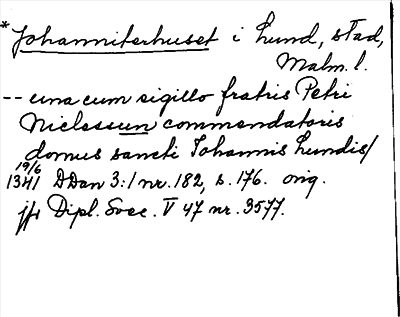 * Johanniterhuset i Lund, stad,
Malm. l.
-- una cum sigillo fratris Petri
Niclessun commendatoris
domus sancti Johannis Lundis/
19/6
1341 DDan 3:1 nr. 182, s. 176. orig.
jfr Dipl. Svec. V 47 nr. 3577.